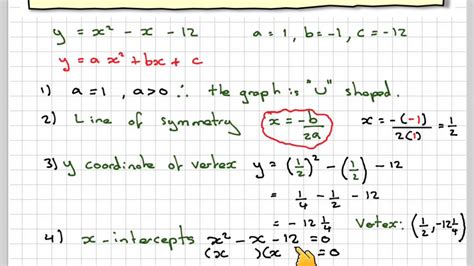 y = x² - x - 12 a = 1, b = -1, c = -12
y = a x² + bx + c
1) a = 1, a > 0 ∴ the graph is "U" shaped.
2) Line of symmetry x = -b/2a x = -(-1)/2(1) = 1/2
3) y coordinate of vertex y = (1/2)² - (1/2) - 12
= 1/4 - 1/2 - 12
= -12 1/4 Vertex: (1/2, -12 1/4)
4) x-intercepts x² - x - 12 = 0
(x )(x = 0